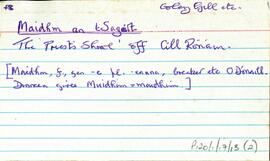 Golam Gyill etc.
Maidhm an tSagairt
The 'Priest's Shoal' off Cill Rónáin.
[Maidhm, f., gen -e pl. -eanna, breaker etc O Dónaill.
Dinneen gives Muidhm = maidhm.]
P120/1/17/13 (2)